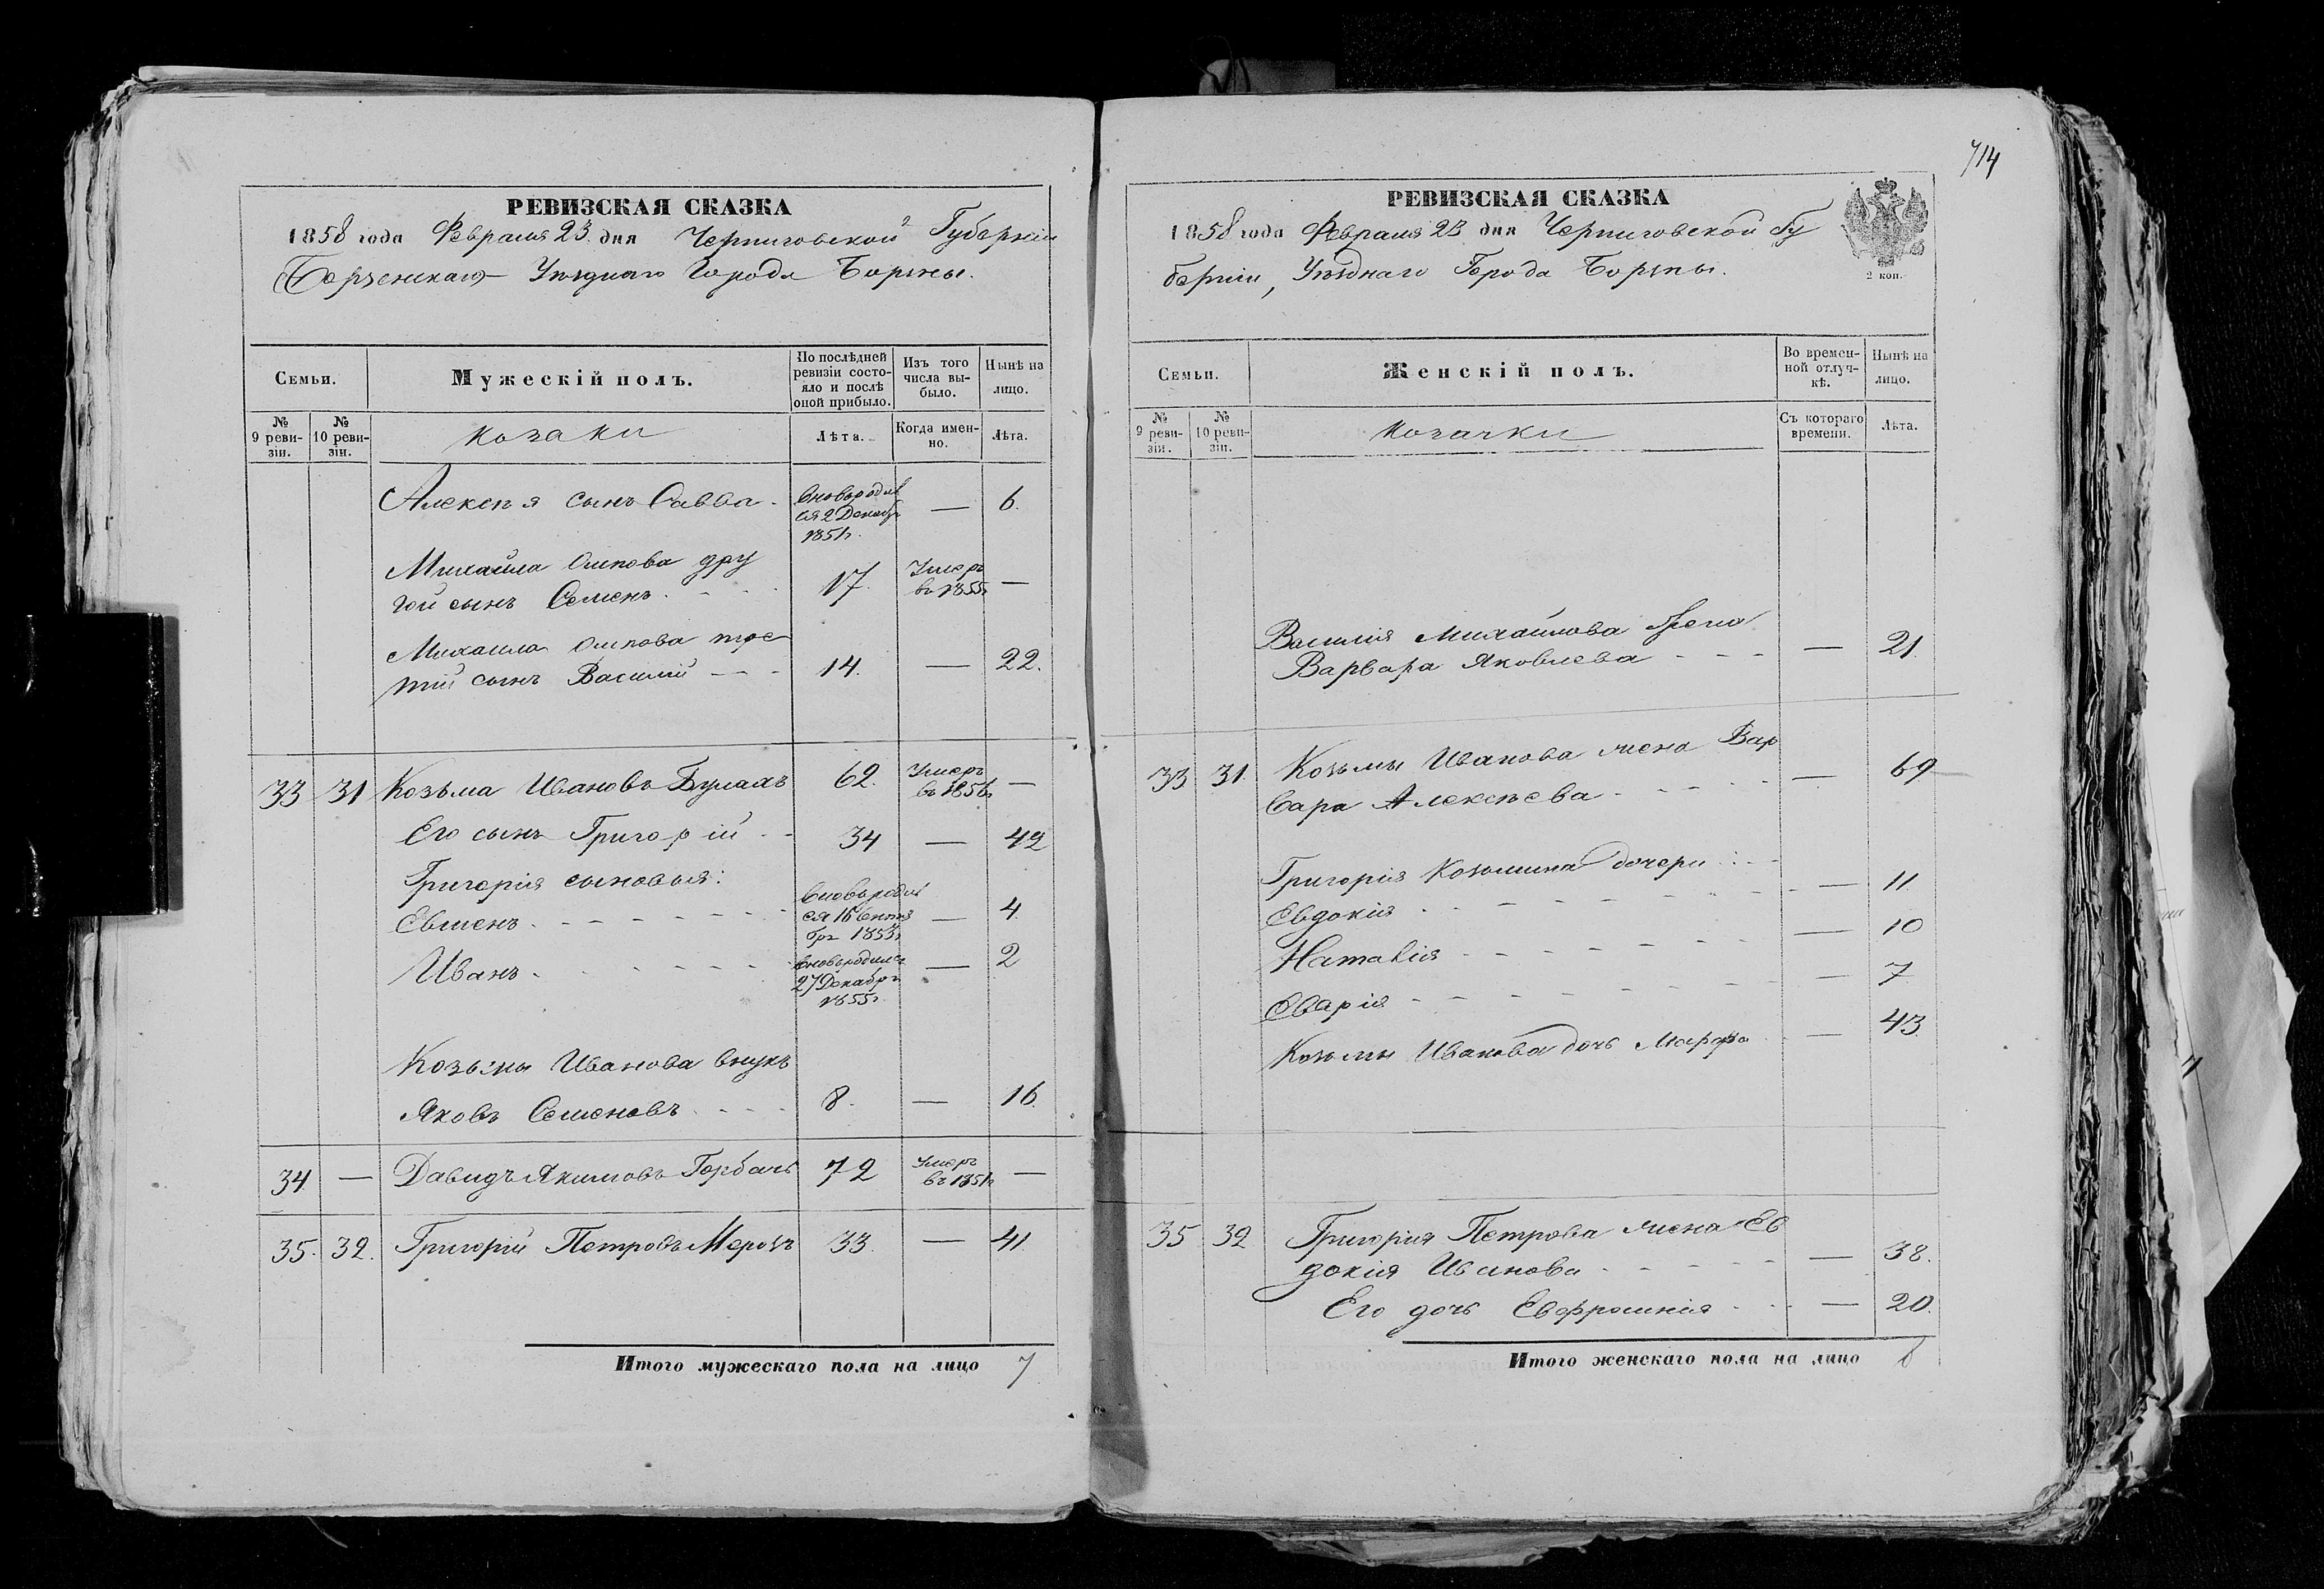 714
РЕВИЗСКАЯ СКАЗКА
1858 года Февраля 23 дня Черниговской Губерніи
Борзенскаго Уѣзднаго Города Борзны.
Семьи.
Мужескій полъ.
По послѣдней ревизіи состояло и послѣ оной прибыло.
Изъ того числа выбыло.
Нынѣ на лицо.
№ 9 ревизіи.
№ 10 ревизіи.
Козаки
Лѣта.
Когда именно.
Лѣта.
Алексѣя сынъ Савва - Вновьродився 2 Декабр 1851г. — 6.
Михайла Осипова дру
гой сынъ Семенъ 17. Умеръ въ 1855г —
Михаила Осипова тре
тій сынъ Василій 14. — 22.
33 31 Козьма Ивановъ Булахъ 62. Умеръ въ 1856г —
Его сынъ Григорій 34 — 42
Григорія сыновья:
Евменъ Вновьродився 15 Сентября 1853г — 4
Иванъ Вновьродилс 27 Декабря 1855г — 2
Козьмы Иванова внукъ
Яковъ Семеновъ 8. — 16.
34 — Давидъ Якимовъ Горбачь 72 Умеръ въ 1851г —
35. 32. Григорій Петровъ Морозъ 33. — 41.
Итого мужескаго пола на лицо 7
РЕВИЗСКАЯ СКАЗКА
1858 года Февраля 23 дня Черниговской Гу
берніи, Уѣзднаго Города Борзны.
2 коп.
Семьи.
Женскій полъ.
Во временной отлучкѣ.
Нынѣ на лицо.
№ 9 ревизіи.
№ 10 ревизіи.
Козачки
Съ котораго времени.
Лѣта.
Василія Михайлова жена
Варвара Яковлева — 21.
33 31. Козьмы Иванова жена Вар
вара Алексѣева — 69
Григорія Козьмина дочери
Евдокія — 11.
Наталія — 10
— 7
Козьмы Иванова дочь Марфа — 43.
35 32 Григорія Петрова жена Ев
докія Иванова — 38.
Его дочь Евфросинія — 20.
Итого женскаго пола на лицо